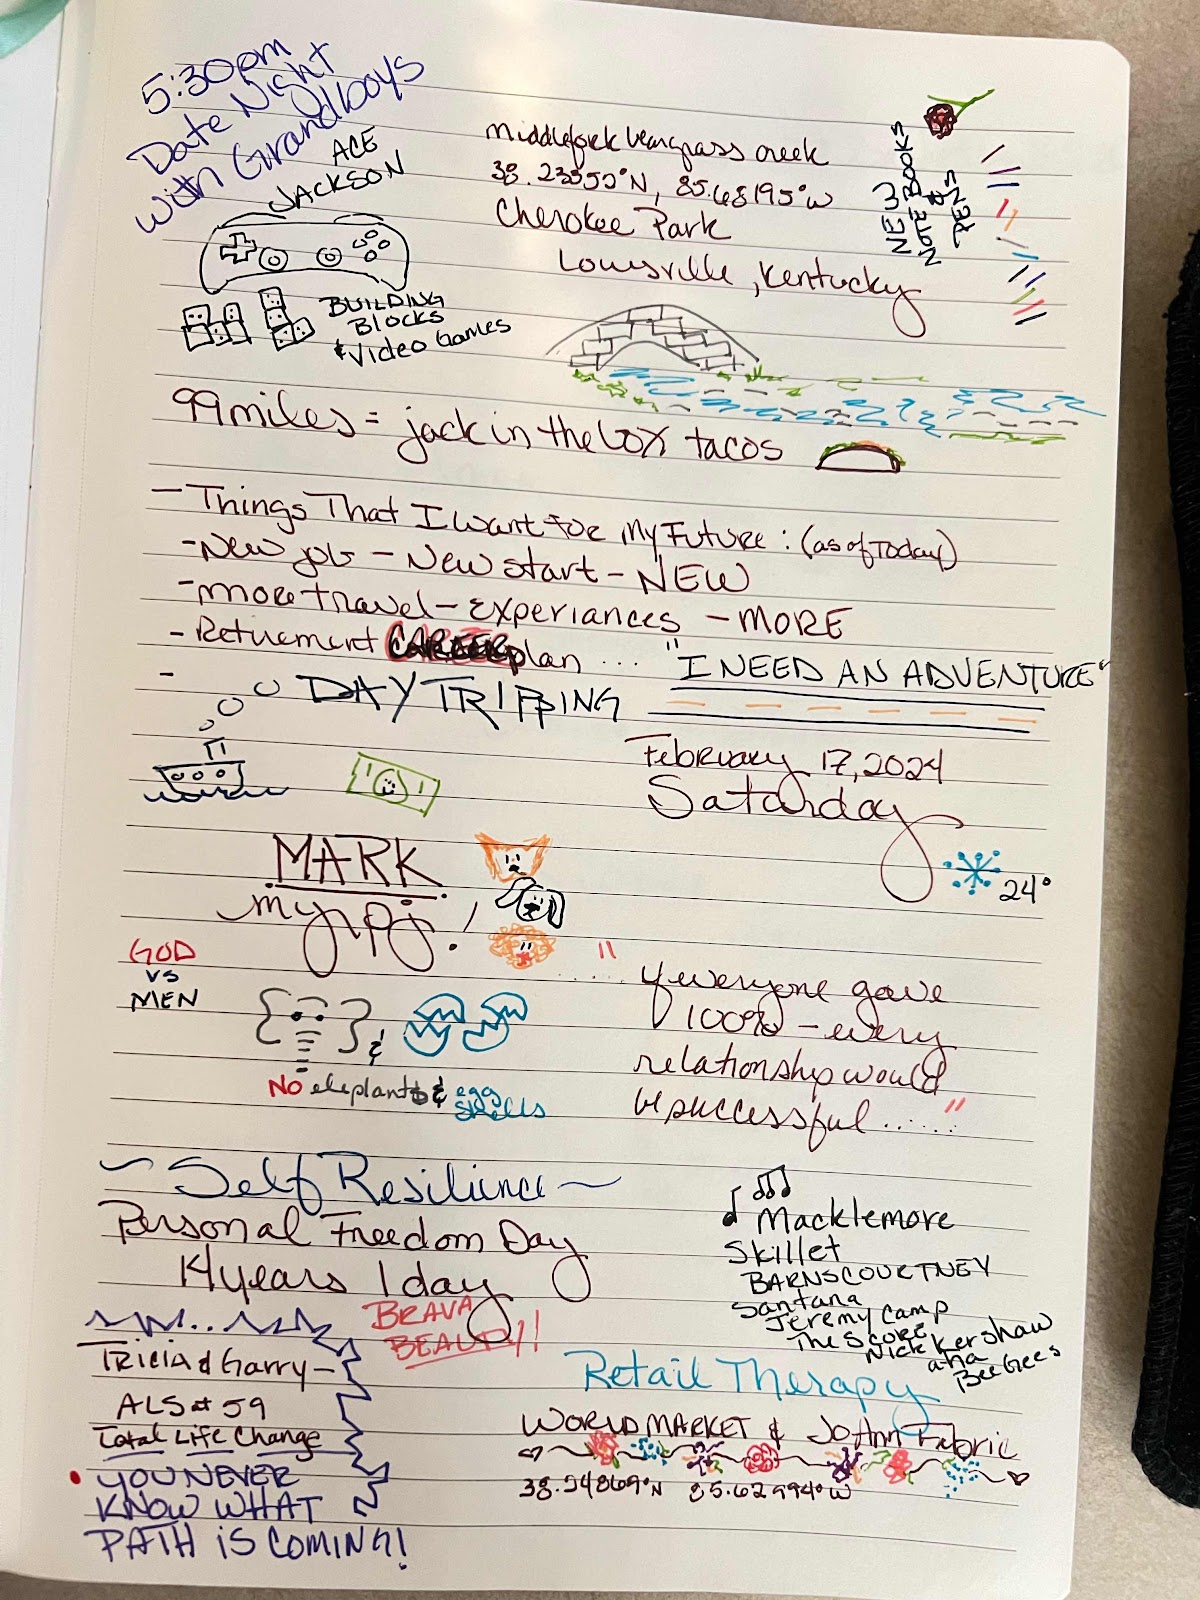 5:30pm
Date Night
with Grandboys
ACE
JACKSON
BUILDING
Blocks
& Video Games
Middlefork beargrass creek
38.23352°N, 85.68195°W
Cherokee Park
Louisville, Kentucky
NEW
NOTEBOOKS
&
PENS
99 miles = jack in the box tacos
- Things That I want for My Future: (as of Today)
- New job - New start - NEW
- more travel - Experiances - MORE
- Retirement CAREER plan ... "I NEED AN ADVENTURE"
-
DAY TRIPPING
February 17, 2024
Saturday
24°
MARK
my pj!
GOD
vs
MEN
NO elephants & egg
shells
"
..... if everyone gave
100% - every
relationship would
be successful ......"
~ Self Resilience ~
Personal Freedom Day
14 years 1 day
BRAVA
BEAUTY!!
Tricia & Garry -
ALS at 59
Total Life Change
• YOU NEVER
KNOW WHAT
PATH iS COMING!
Macklemore
Skillet
BARNSCOURTNEY
Santana
Jeremy Camp
The Score
Nick Kershaw
aha
BeeGees
Retail Therapy
WORLD MARKET & JoAnn Fabric
38.24869°N 85.62994°W